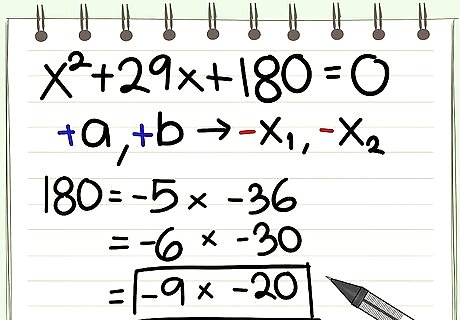 x²+29x+180=0
+a,+b→-x₁,-x₂
180=-5x -36
=-6 x -30
=-9x -20